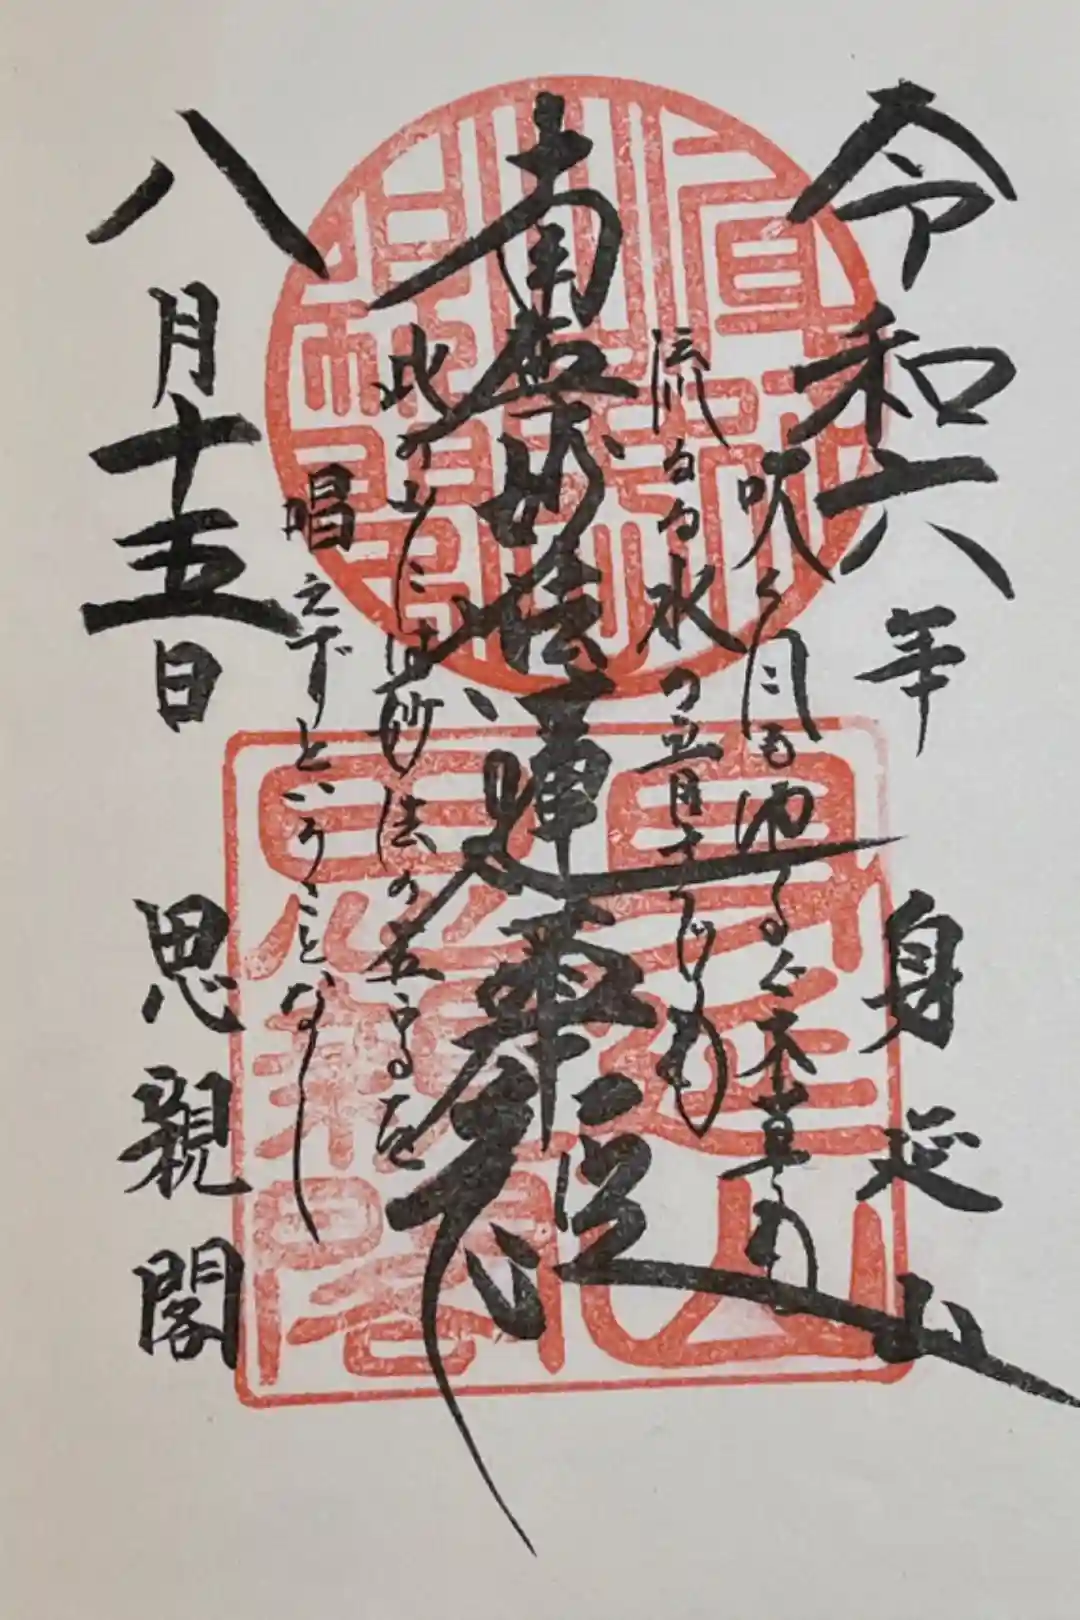 令和六年 身延山
吹く風もゆるぐ木草も
流るる水の音までも
南無妙法蓮華経
此の山には妙法の五字を
唱えずということなし
八月十五日 思親閣
身延山
思親閣